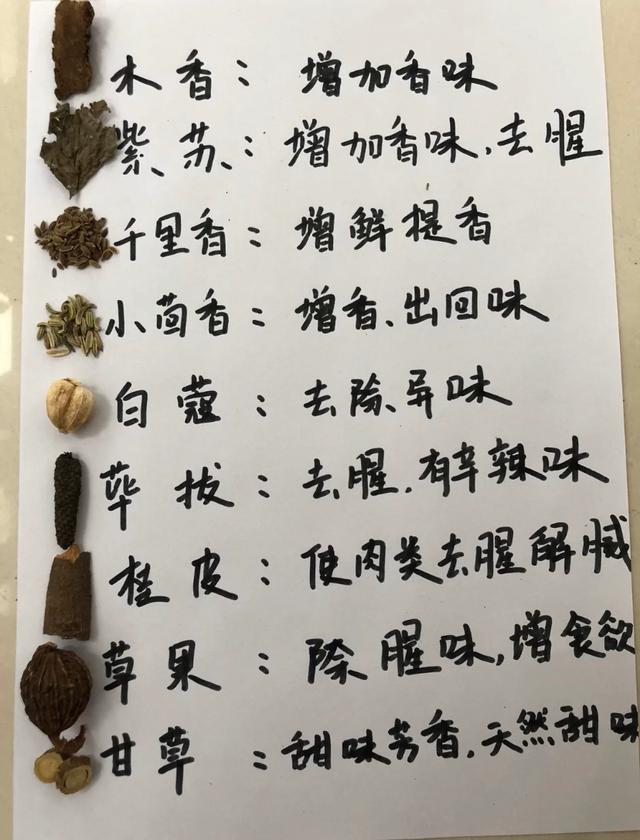 木香：增加香味
紫苏：增加香味、去腥
千里香：增鲜提香
小茴香：增香、出回味
白蔻：去除异味
荜拔：去腥、有辛辣味
桂皮：使肉类去腥解腻
草果：除腥味,增食欲
甘草：甜味芳香、天然甜味